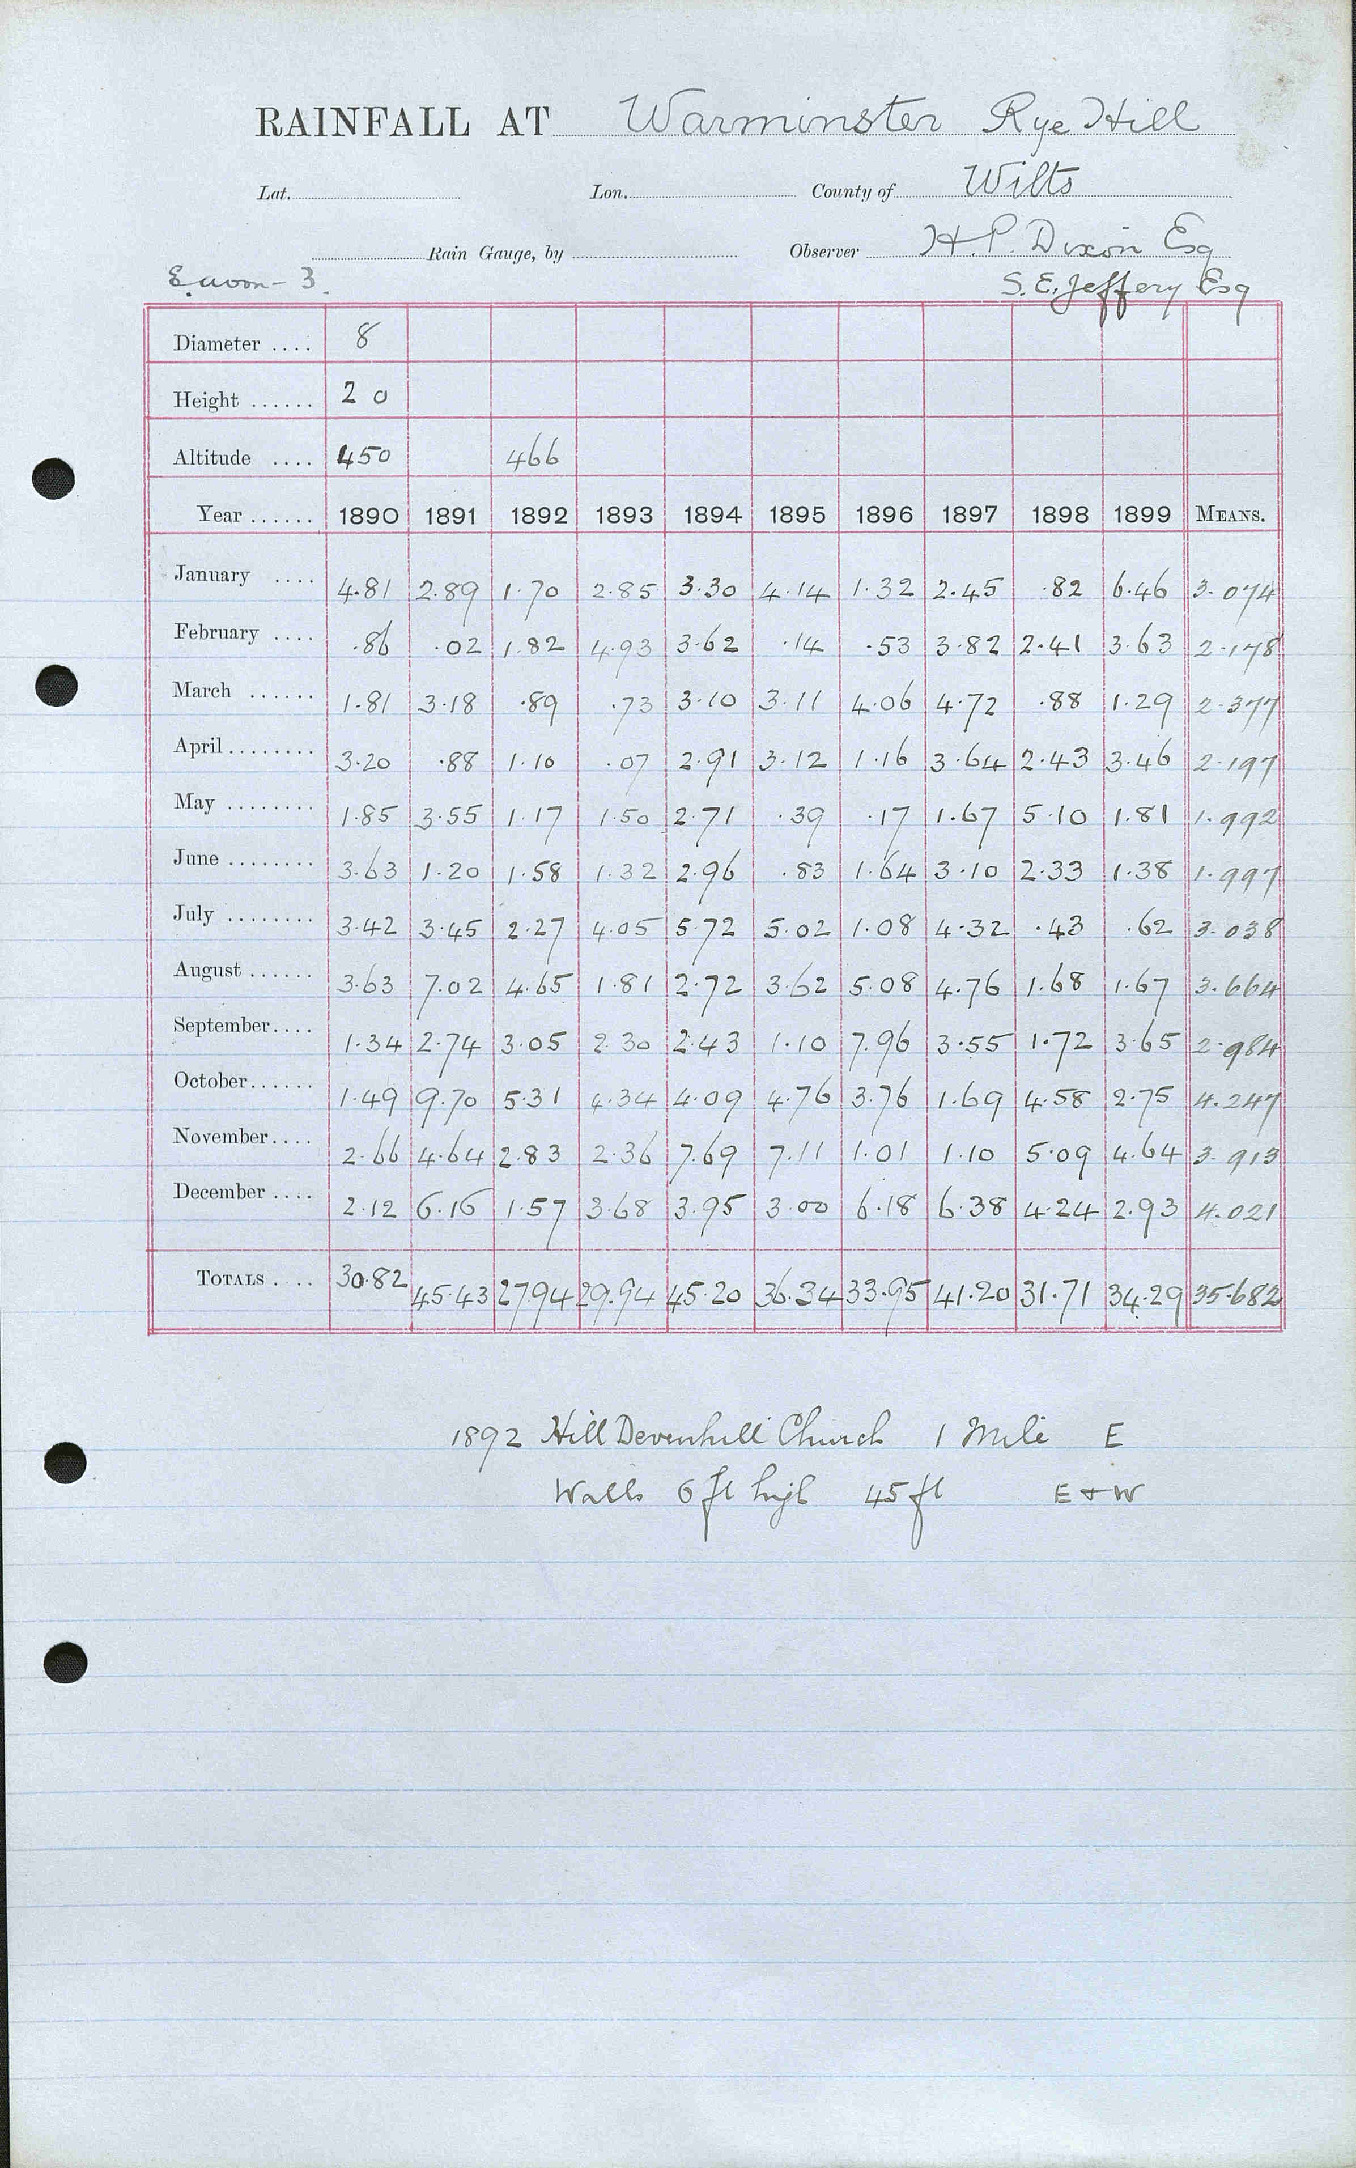 RAINFALL AT Warminster Rye Hill
Lat. Lon. County of Wilts
Rain Gauge, by Observer H. P. Dixon Esq
E. avon - 3. S. E. Jeffery Esq
Diameter .... 8
Height ...... 2 0
Altitude .... 450 466
Year ...... 1890 1891 1892 1893 1894 1895 1896 1897 1898 1899 MEANS.
January .... 4.81 2.89 1.70 2.85 3.30 4.14 1.32 2.45 .82 6.46 3.074
February .... .86 .02 1.82 4.93 3.62 .14 .53 3.82 2.41 3.63 2.178
March ...... 1.81 3.18 .89 .73 3.10 3.11 4.06 4.72 .88 1.29 2.377
April ........ 3.20 .88 1.10 .07 2.91 3.12 1.16 3.64 2.43 3.46 2.197
May ........ 1.85 3.55 1.17 1.50 2.71 .39 .17 1.67 5.10 1.81 1.992
June ........ 3.63 1.20 1.58 1.32 2.96 .83 1.64 3.10 2.33 1.38 1.997
July ........ 3.42 3.45 2.27 4.05 5.72 5.02 1.08 4.32 .43 .62 3.038
August ...... 3.63 7.02 4.65 1.81 2.72 3.62 5.08 4.76 1.68 1.67 3.664
September.... 1.34 2.74 3.05 2.30 2.43 1.10 7.96 3.55 1.72 3.65 2.984
October...... 1.49 9.70 5.31 4.34 4.09 4.76 3.76 1.69 4.58 2.75 4.247
November.... 2.66 4.64 2.83 2.36 7.69 7.11 1.01 1.10 5.09 4.64 3.913
December .... 2.12 6.16 1.57 3.68 3.95 3.00 6.18 6.38 4.24 2.93 4.021
TOTALS .... 30.82 45.43 27.94 29.94 45.20 36.34 33.95 41.20 31.71 34.29 35.682
1892 Hill Devenhill Church 1 Mile E
Walls 6 ft high 45 ft E + W